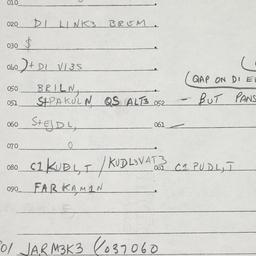 010
020 DI LINKS BREM.
030 $
040 )+ DI VI3S
(QAP ON DI E
050 BRILN,
051 StPAKULN QS ALT3 052 – BUT PANS
060 StEJDL, 061 –
070 0
080 C1KUDL,T / KUDLSVAT3 083 C1 PUDL,T
090 FARKAM1N
01 JARM3K3 (1037060